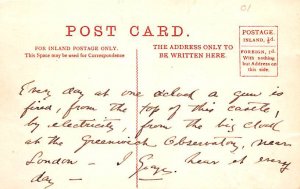 01
POST CARD.
FOR INLAND POSTAGE ONLY.
This Space may be used for Correspondence
THE ADDRESS ONLY TO
BE WRITTEN HERE.
POSTAGE.
INLAND, ½d.
FOREIGN, 1d.
With nothing
but Address on
this side.
Every day at one oclock a gun is
fired, from the top of this castle,
by electricity, from the big clock
at the Greenwich Observatory, near
London – I hear it every
day —